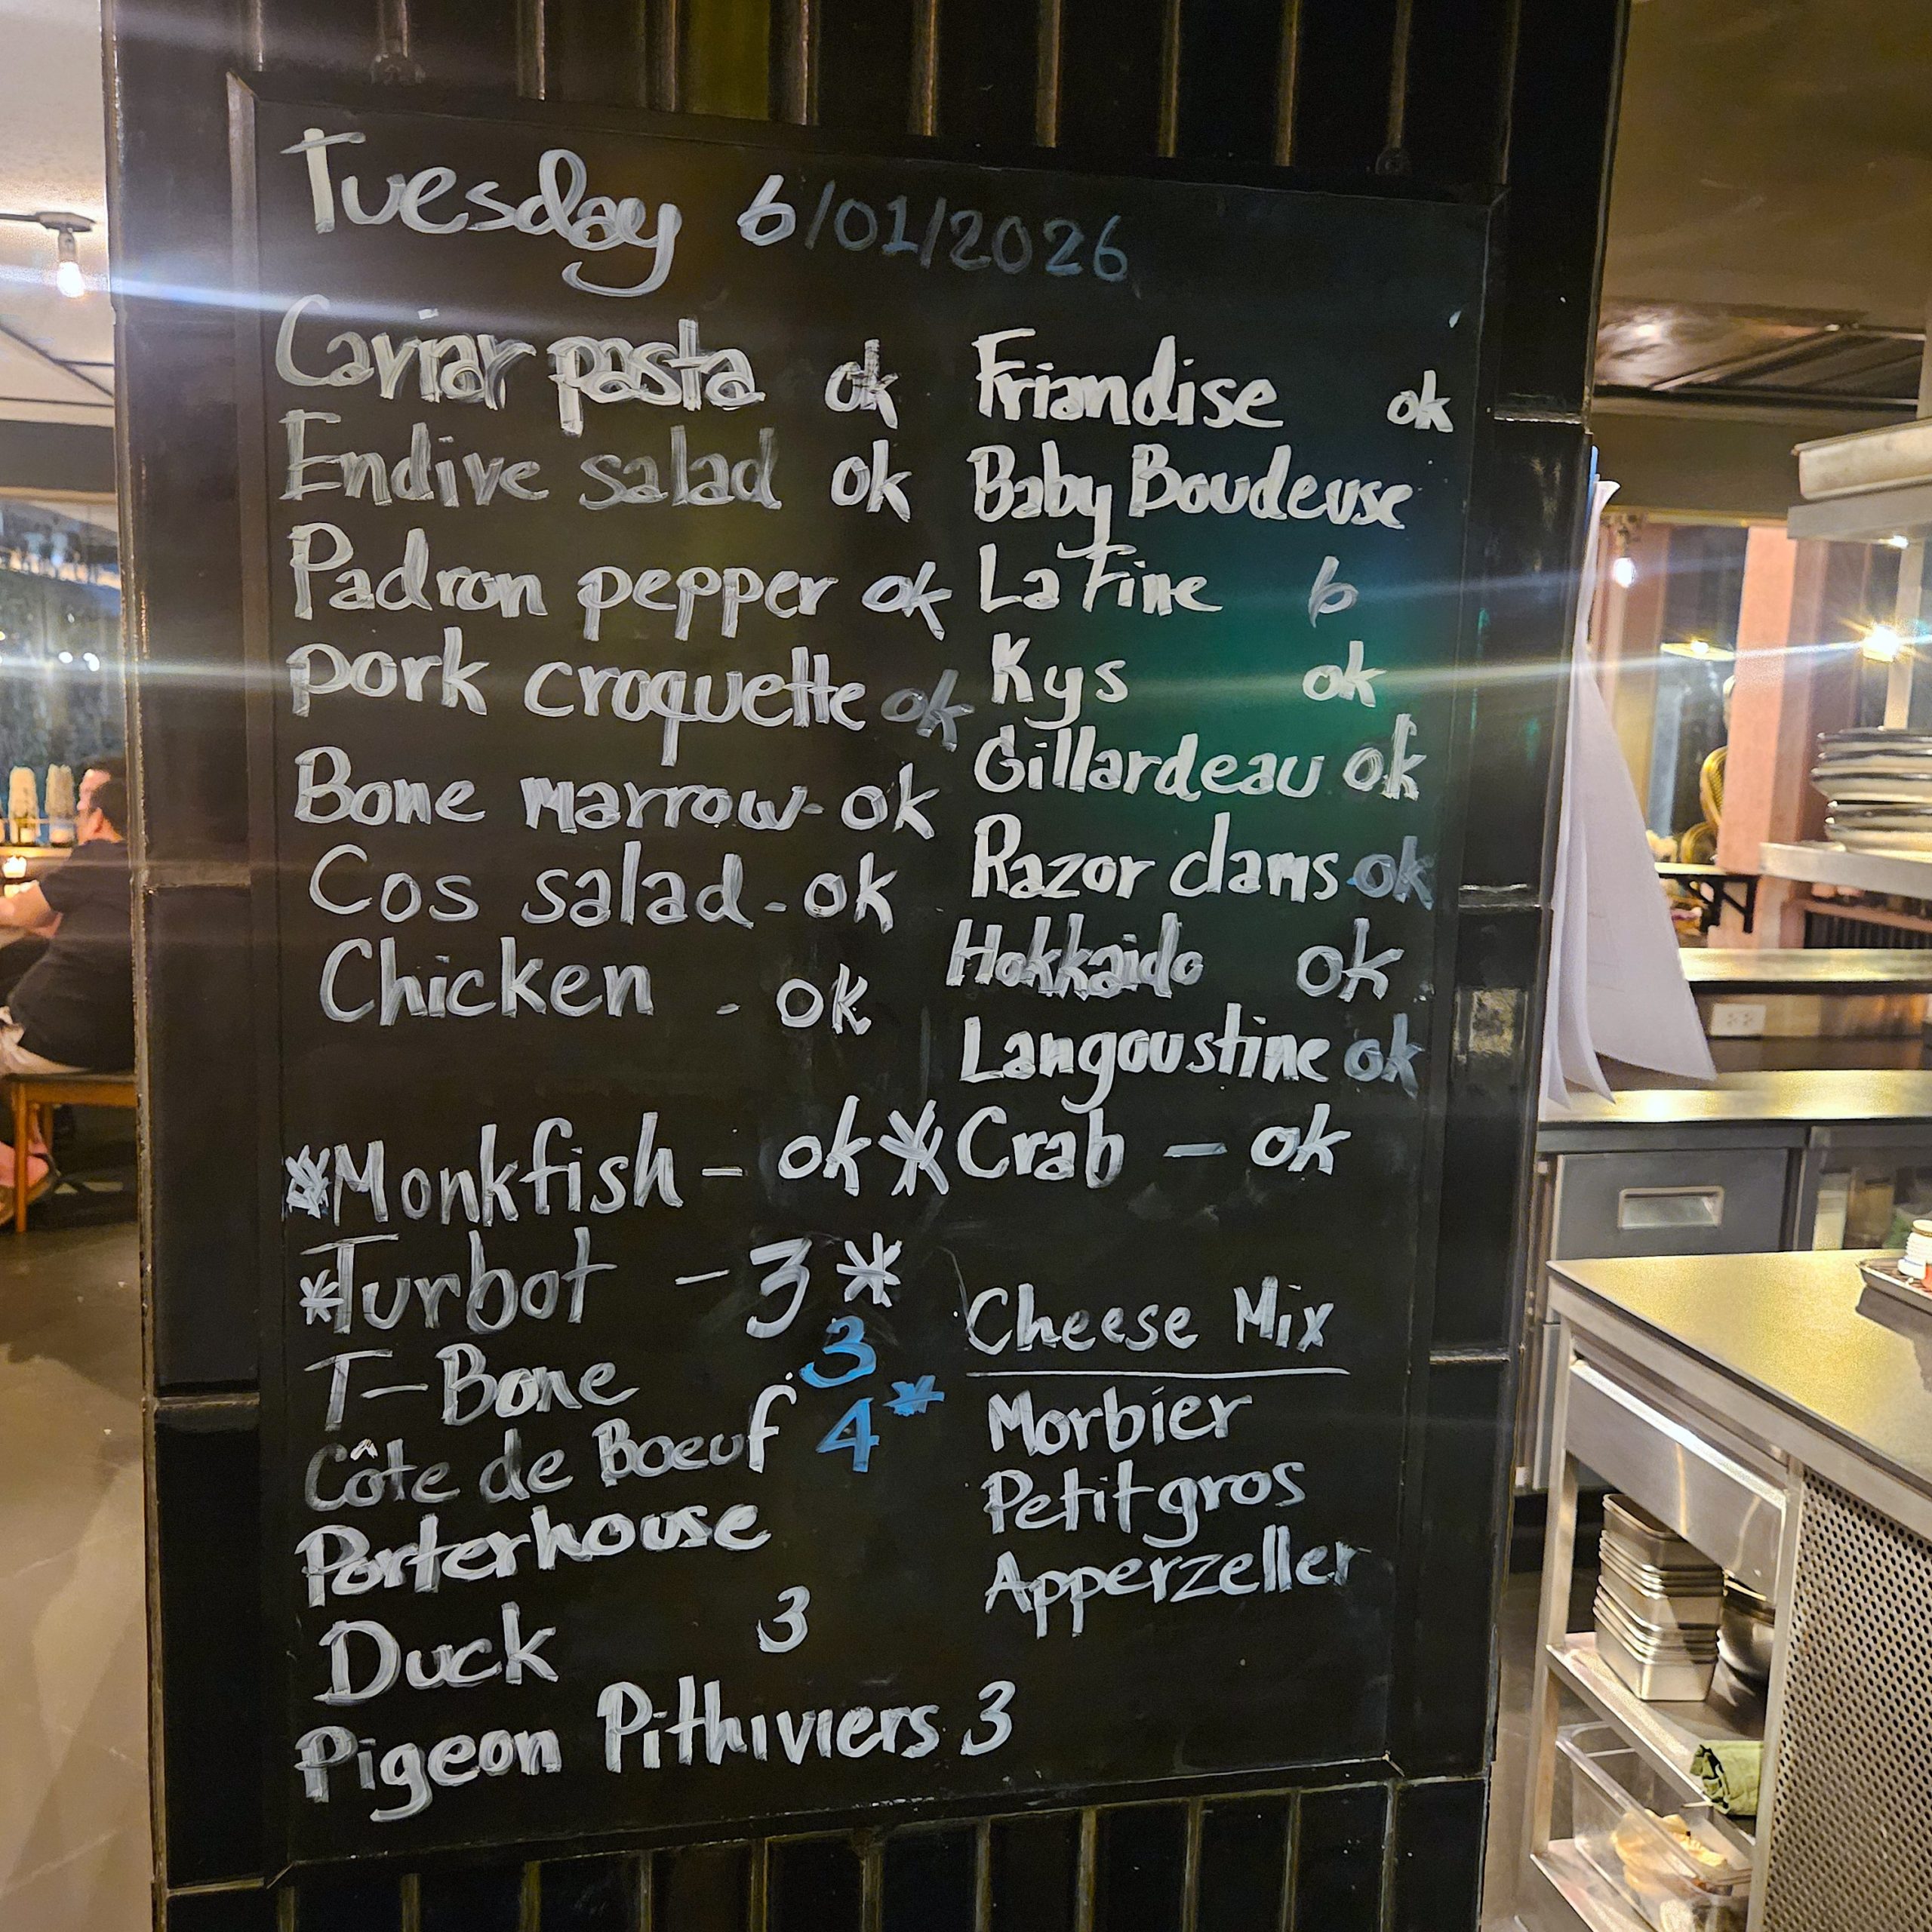 Tuesday 6/01/2026
Caviar pasta ok
Endive salad ok
Padron pepper ok
Pork croquette ok
Bone marrow - ok
Cos salad - ok
Chicken - ok
*Monkfish - ok *
*Turbot - 3 *
T-Bone 3
Côte de Boeuf 4*
Porterhouse
Duck 3
Pigeon Pithiviers 3
Friandise ok
Baby Boudeuse
La Fine 6
Kys ok
Gillardeau ok
Razor clams ok
Hokkaido ok
Langoustine ok
Crab - ok
Cheese Mix
Morbier
Petit gros
Apperzeller